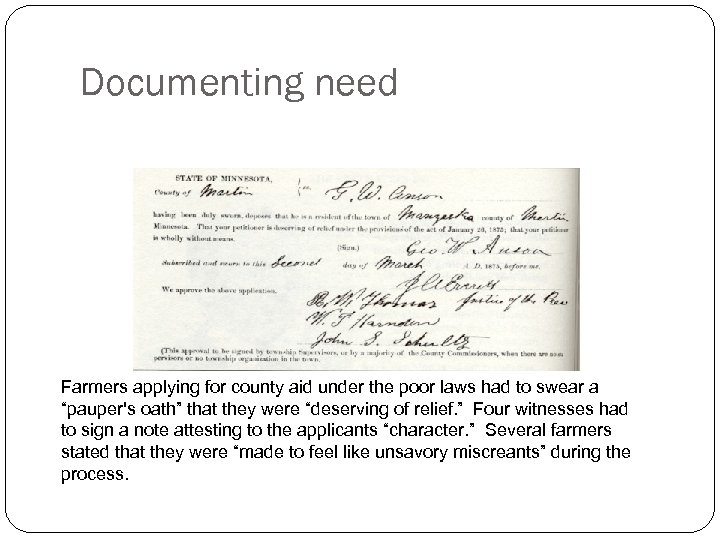 Documenting need
STATE OF MINNESOTA,
County of Martin } ss. G. W. Anson
having been duly sworn, deposes that he is a resident of the town of Manyaska county of Martin
Minnesota. That your petitioner is deserving of relief under the provisions of the act of January 26, 1875; that your petitioner
is wholly without means.
(Sign.) Geo W Anson
Subscribed and sworn to this Second day of March A. D. 1875, before me.
Justice of the
We approve the above application.
Thomas
W. T. Harnden
John S. Schultz
(This approval to be signed by township Supervisors, or by a majority of the County Commissioners, when there are no su-
pervisors or no township organization in the town.)
Farmers applying for county aid under the poor laws had to swear a
“pauper's oath” that they were “deserving of relief.” Four witnesses had
to sign a note attesting to the applicants “character.” Several farmers
stated that they were “made to feel like unsavory miscreants” during the
process.